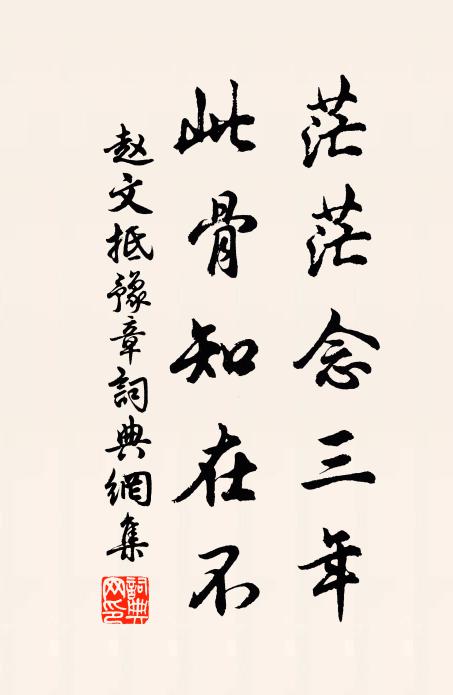 茫茫念三年
此骨知在不
赵文抵豫章詞典網集
詞典网印